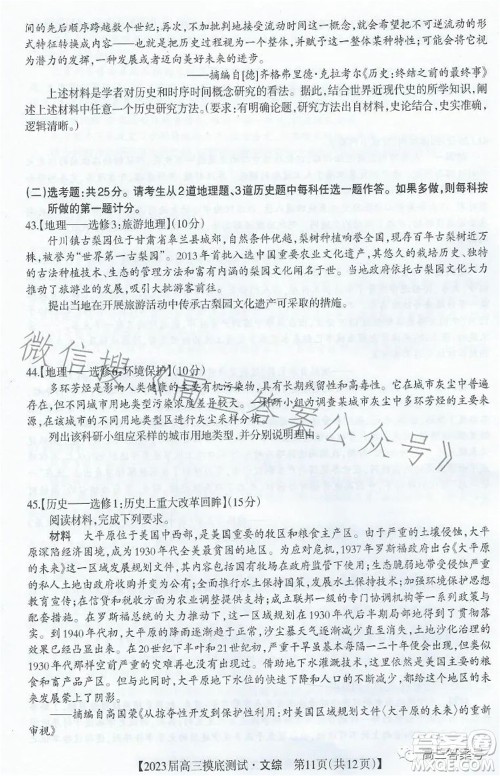 间的先后顺序跨越数个世纪；再次，不加批判地接受流动的历史时间概念会诱导人们将不可逆流动的形
式特征转换成内容——也就是把历史过程视为一个整体，并且赋予这一整体某种特性；可能会将它视
为潜力的发挥、一种发展或者迈向美好未来的进步。
——摘编自[德]齐格弗里德·克拉考尔《历史：终结之前的最终事》
上述材料是学者对历史和时序时间概念研究的看法。据此，结合世界近现代史的所学知识，阐
述上述材料中任意一个历史研究方法。（要求：有明确论题，研究方法出自材料，史论结合，史实准确，
逻辑清晰。）
（二）选考题：共25分。请考生从2道地理题、3道历史题中每科任选一题作答。如果多做，则每科按
所做的第一题计分。
43.【地理——选修3：旅游地理】（10分）
什川镇古梨园位于甘肃省皋兰县城郊，自然条件优越，历史文化悠久，现存百年古梨树近万
株，被誉为“世界第一古梨园”。2013年首批入选中国重要农业文化遗产，其悠久的栽培历史、独
特的古法种植技术、生态的管理方法和丰富的梨园文化闻名于世。当地政府依托古梨园文化大力
推动了旅游业的发展，吸引大批游客前往。
提出当地在开展旅游活动中传承古梨园文化遗产可采取的措施。
44.【地理——选修6：环境保护】（10分）
多环芳烃是影响人类健康的主要有机污染物，具有强致癌性。它在城市灰尘中普遍
存在，但不同城市用地类型污染浓度差异较大。某科研小组为调查某城市灰尘中多环芳烃的来
源，在该城市的不同用地类型采样研究。
列出该科研小组应采样的城市用地类型，并分别说明理由。
45.【历史——选修1：历史上重大改革回眸】（15分）
阅读材料，完成下列要求。
材料　大平原位于美国中西部，是美国重要的牧区和粮食主产区。由于严重的土壤侵蚀，大平
原深陷经济困境，成为1930年代令美国政府头疼的重要区域。1937年罗斯福政府出台《大平原
的未来》这一区域发展规划文件，其内容包括将公有草地保存在政府监管下使用；生态脆弱地带受侵蚀严重
的私人土地由政府收购并变为公有；全面推行水土保持国策，发展水土保持技术；加强环境保护思想
教育宣传；在贫困或自然灾害时为农业提供支持；成立联邦一级的专门协调机构等一系列政策与
配套措施。在罗斯福总统的大力支持下，这一区域规划在1930年代后半期局部地得到大力发展。
到1940年代初，大平原的降雨逐渐趋于正常，沙尘暴天气大幅减少，水土保持和农业改革的
效果已经凸显出来。在20世纪下半叶和21世纪初，虽然大平原的干旱每隔一二十年便会出现，但
1930年代那样空前严重的灾难再也没有出现过。借助于地下水灌溉，大平原依然是美国主要的粮
食和畜产品产区。但因为持续开发，大平原地下水位的严重下降依然是这一区域以及美国的未
来发展蒙上了一层阴影。
——摘编自高国荣《从掠夺性开发到保护性利用：对美国区域规划文件〈大平原的未来〉的重新
审视》
微信搜《高三答案公众号》
【2023届高三摸底测试·文综　第11页(共12页)】
高三答案号